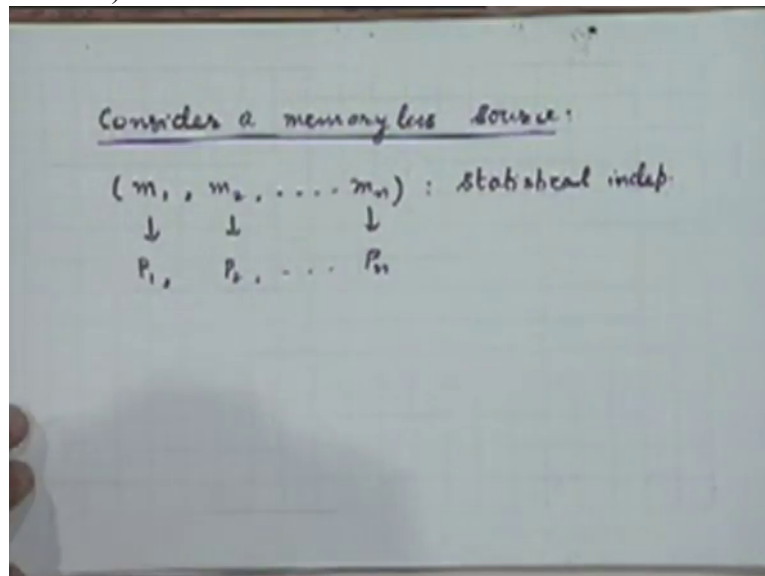 Consider a memoryless source:
(m₁, m₂, .... mₙ) : Statistical indep.
↓ ↓ ↓
P₁, P₂, ... Pₙ